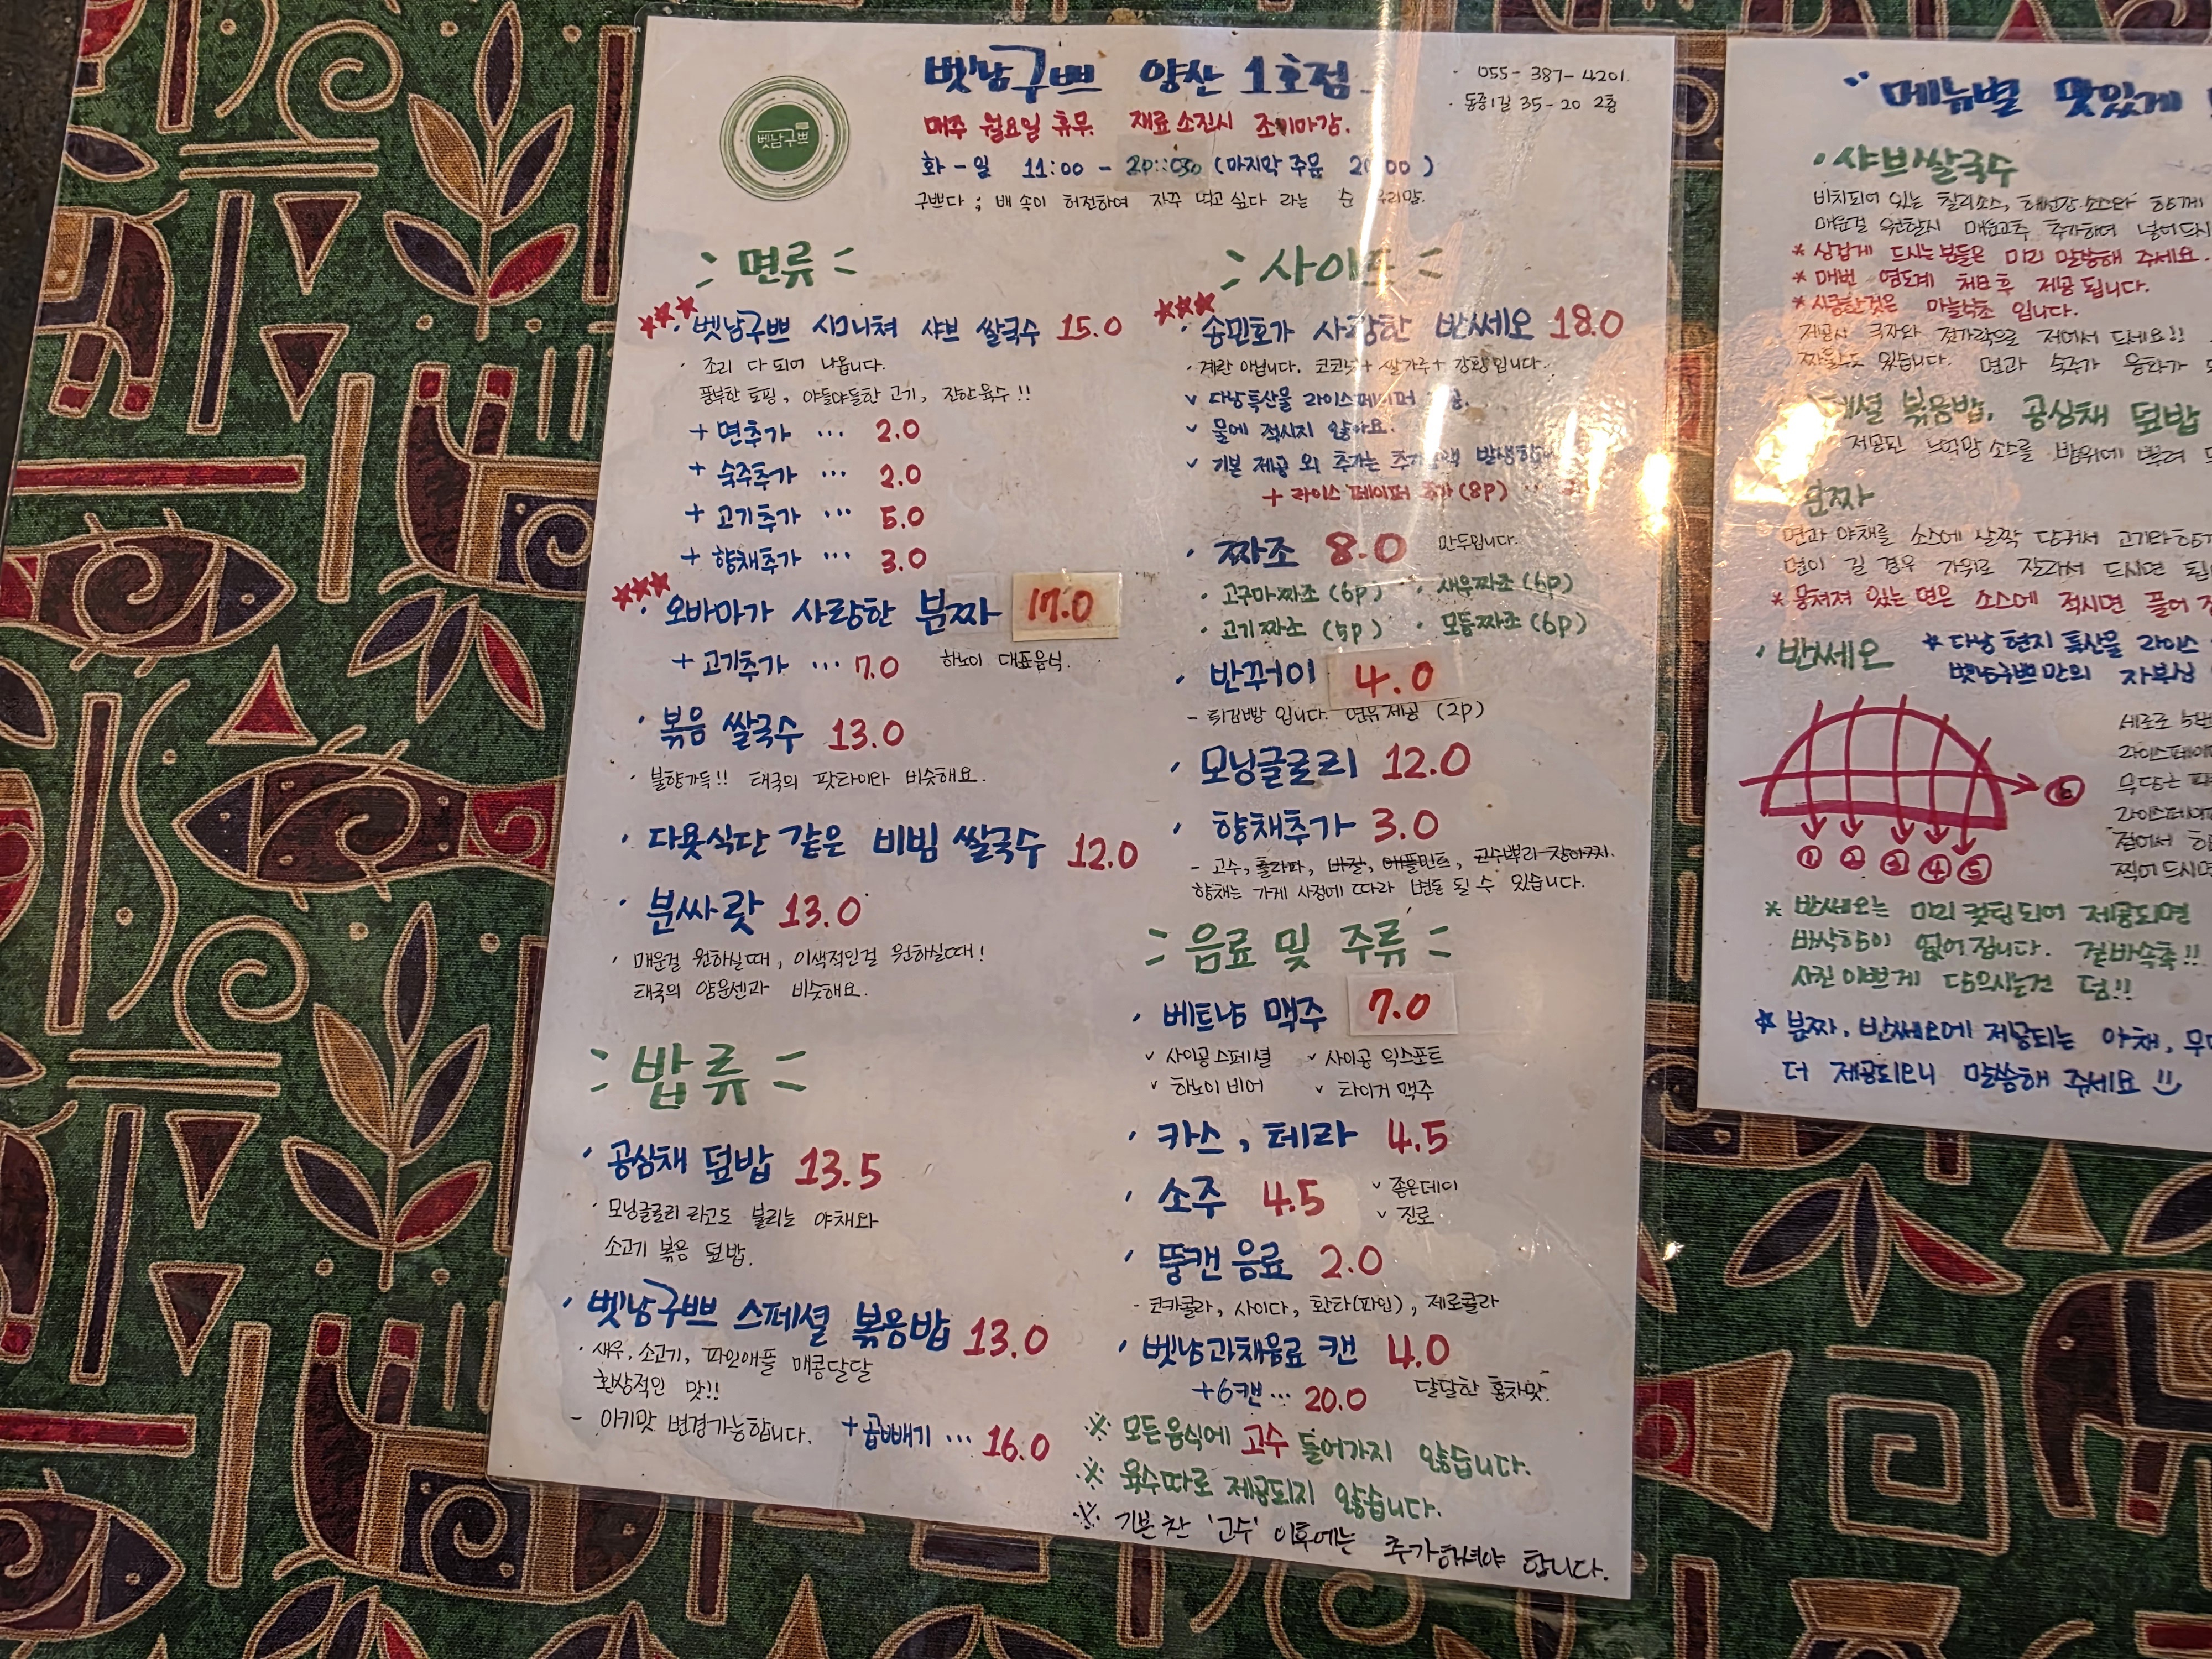 벳남구쁘 양산 1호점
· 055-387-4201
· 동중1길 35-20 2층
벳남구쁘
매주 월요일 휴무. 재료 소진시 조기마감.
화 - 일 11:00 - (마지막 주문
구쁘다 ; 배 속이 허전하여 자꾸 먹고 싶다 라는 순 우리말.
면류
· 벳남구쁘 시그니쳐 샤브 쌀국수 15.0
· 조리 다 되어 나옵니다.
풍부한 토핑, 야들야들한 고기, 진한 육수!!
+ 면추가 ... 2.0
+ 숙주추가 ... 2.0
+ 고기추가 ... 5.0
+ 향채추가 ... 3.0
· 오바마가 사랑한 분짜 17.0
+ 고기추가 ... 7.0 하노이 대표음식.
· 볶음 쌀국수 13.0
· 불향가득!! 태국의 팟타이와 비슷해요.
· 다욧식단 같은 비빔 쌀국수 12.0
· 분싸랏 13.0
· 매운걸 원하실때, 이색적인걸 원하실때!
태국의 얌운센과 비슷해요.
밥류
· 공심채 덮밥 13.5
· 모닝글로리 라고도 불리는 야채와
소고기 볶음 덮밥.
· 벳남구쁘 스페셜 볶음밥 13.0
· 새우, 소고기, 파인애플 매콤달달
환상적인 맛!!
- 아기맛 변경가능합니다. + 곱빼기 ... 16.0
사이드
· 송민호가 사랑한 반쎄오 18.0
· 계란 아닙니다. 코코넛 + 쌀가루 + 강황입니다.
v 다낭특산물 라이스페이퍼
v 물에 적시지 않아요.
v 기본 제공 외 추가는
+ 라이스 페이퍼 추가 (8p)
· 짜조 8.0 만두입니다.
· 고구마짜조 (6p) · 새우짜조 (6p)
· 고기짜조 (5p) · 모듬짜조 (6p)
· 반꾸어이 4.0
- 튀김빵 입니다. 연유제공 (2p)
· 모닝글로리 12.0
· 향채추가 3.0
- 고수, 홀라파, 바질, 애플민트, 고수뿌리 장아찌.
향채는 가게 사정에 따라 변동 될 수 있습니다.
음료 및 주류
· 베트남 맥주 7.0
v 사이공 스페셜 v 사이공 익스포트
v 하노이 비어 v 타이거 맥주
· 카스, 테라 4.5
· 소주 4.5 v 좋은데이
v 진로
· 뚱캔 음료 2.0
- 코카콜라, 사이다, 환타(파인), 제로콜라
· 벳남과채음료 캔 4.0
+6캔 ... 20.0 달달한 홍차맛.
※ 모든음식에 고수 들어가지 않습니다.
※ 육수따로 제공되지 않습니다.
※ 기본찬 '고수' 이후에는 추가하셔야 합니다.
메뉴별 맛있게
· 샤브쌀국수
비치되어 있는 칠리소스, 해선장 소스와 함께
매운걸 원할시 매운고추 추가하여 넣어드시
* 싱겁게 드시는 분들은 미리 말씀해 주세요.
* 매번 염도계 체크후 제공됩니다.
* 시큼한것은 마늘식초 입니다.
제공시 국자와 젓가락으로 저어서 드세요!!
짜울수도 있습니다. 면과 숙주가
볶음밥, 공심채 덮밥
제공된 느억맘 소스를 밥위에 뿌려
분짜
면과 야채를 소스에 살짝 담궈서 고기와 함께
면이 길 경우 가위로 잘라서 드시면
* 뭉쳐져 있는 면은 소스에 적시면 풀어
· 반쎄오 * 다낭 현지 특산물 라이스
벳남구쁘만의 자부심
① ② ③ ④ ⑤ ⑥
* 반쎄오는 미리 컷팅되어 제공되면
바삭함이 없어집니다. 겉바속촉!!
사진 이쁘게 담으시는건 덤!!
* 분짜, 반쎄오에 제공되는 야채,
더 제공되오니 말씀해 주세요